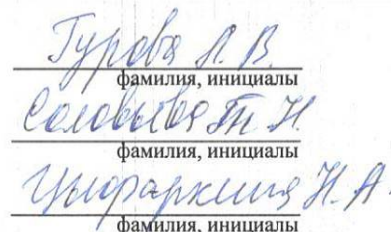 Гурова Л. В.
фамилия, инициалы
Соловьева Т. Н.
фамилия, инициалы
Н. А.
фамилия, инициалы